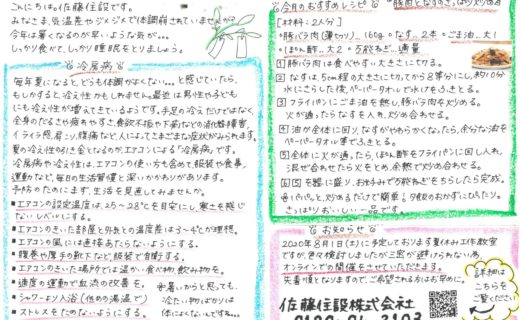 こんにちは。佐藤住設です。
みなさま、気温差やジメジメで体調崩されていませんか?
今年は暑くなるのが早いような気が…
しっかり食べて、しっかり睡眠をとりましょう。
冷房病
毎年夏になると、どうも体調がよくない…。と感じていたら、
もしかすると、冷え性かもしれません。最近は男性や子ども
にも冷え性が増えてきているようです。手足の冷えだけではなく、
全身のだるさや疲れやすさ、食欲不振や下痢などの消化器障害、
イライラ感、肩こり、腰痛など人によってさまざまな症状がみられます。
夏の冷え性の引き金となるのが、エアコンによる「冷房病」です。
冷房病や冷え性は、エアコンの使い方も含めて、服装や食事、
運動など、毎日の生活習慣と深いかかわりがあります。
予防のためにまず、生活を見直してみませんか。
■エアコンの設定温度は、25~28℃を目安にし、寒さを感じ
ないレベルにする。
■エアコンのきいた部屋と外気との温度差は3~4℃が理想。
■エアコンの風には直接あたらないようにする。
■腹巻や厚手の靴下など、服装で自衛する。
■エアコンのきいた場所では温かい食べ物、飲み物を。
■適度の運動で血流の改善を。
■シャワーより入浴(低めの湯温で)
■ストレスをためないようにする。
※暑いからと思っても、
冷たい物ばかりは
体にはよくないんですね…
今月のおすすめレシピ
豚肉となすのさっぱり炒め
[材料:2人分]
・豚バラ肉(薄切り)…160g ・なす…2本 ・ごま油…大1
・ぽん酢…大2 ・万能ねぎ…適量
1 豚バラ肉は食べやすい大きさに切る。
2 なすは、5cm程の大きさに切ってから8等分にし、約10分
水にさらした後、ペーパータオルで水けをふきとる。
3 フライパンにごま油を熱し、豚バラ肉を炒める。
火が通ったらなすを入れ、炒め合わせる。
4 油が全体に回り、なすがやわらかくなったら、余分な油を
ペーパータオル等でふきとる。
5 全体に火が通ったら、ぽん酢をフライパンに回し入れ、
混ぜ合わせたら火をとめ、余熱で炒め合わせる。
6 5を器に盛り、お好みで万能ねぎをちらしたら完成。
お知らせ
2020年8月1日(土)に予定しております夏休み工作教室
ですが、色々検討しましたが三密が避けられない為、
オンラインでの開催をさせていただきます。
先着順となりますので、ご希望される方はお早めに。
佐藤住設株式会社
詳細は
こちらを
ご覧
ください